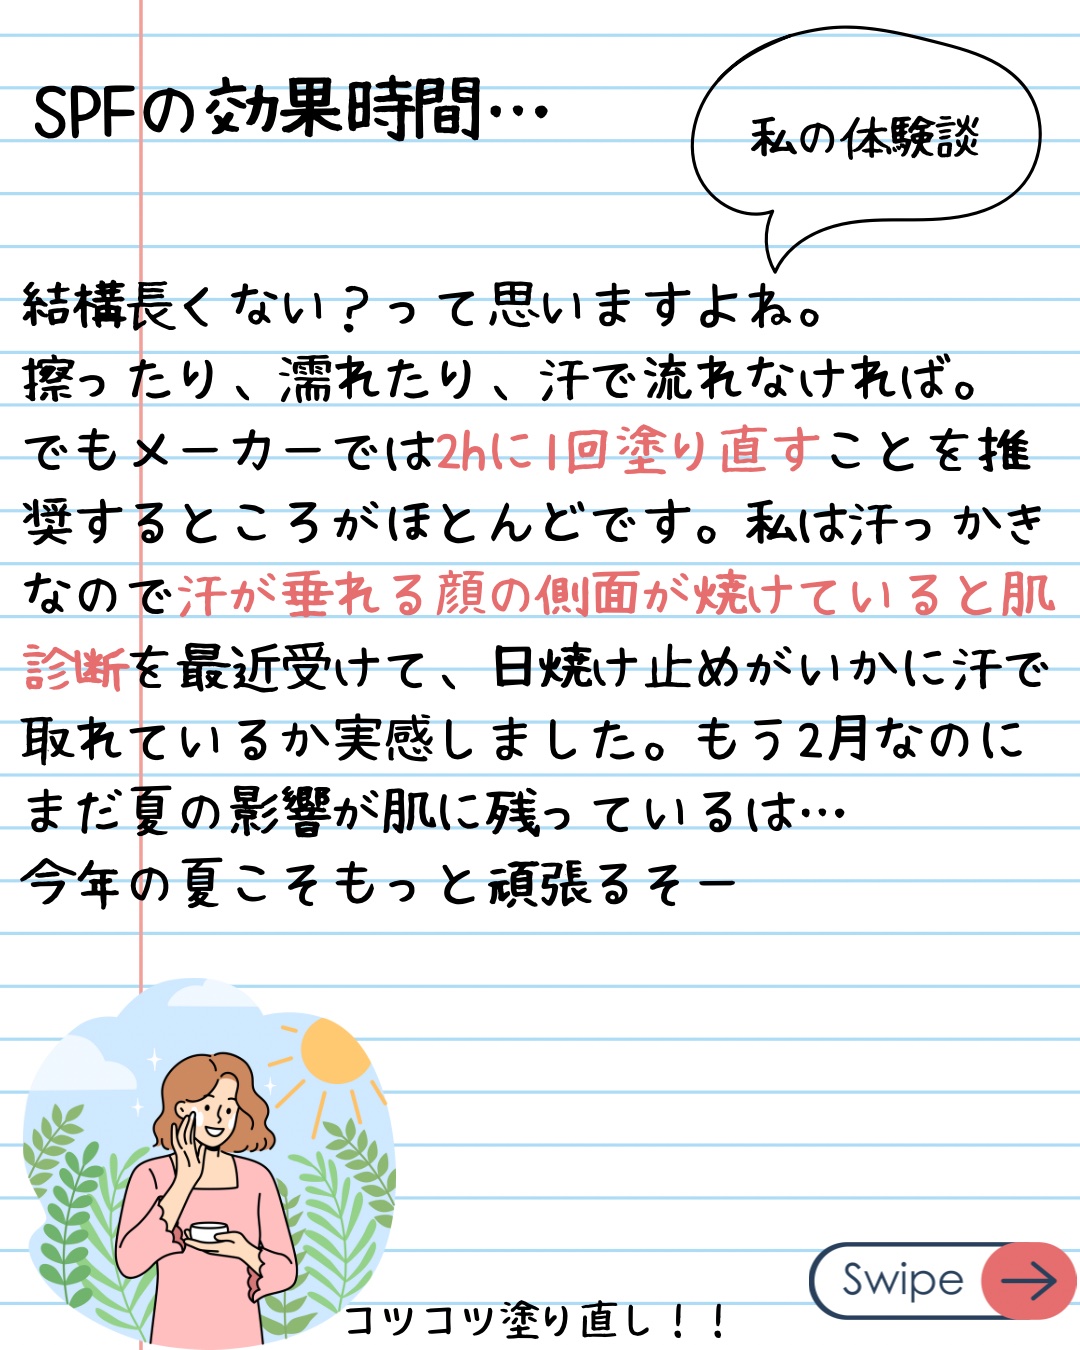 SPFの効果時間…
私の体験談
結構長くない？って思いますよね。
擦ったり、濡れたり、汗で流れなければ。
でもメーカーでは2hに1回塗り直すことを推
奨するところがほとんどです。私は汗っかき
なので汗が垂れる顔の側面が焼けていると肌
診断を最近受けて、日焼け止めがいかに汗で
取れているか実感しました。もう2月なのに
まだ夏の影響が肌に残っているは…
今年の夏こそもっと頑張るそー
コツコツ塗り直し！！
Swipe